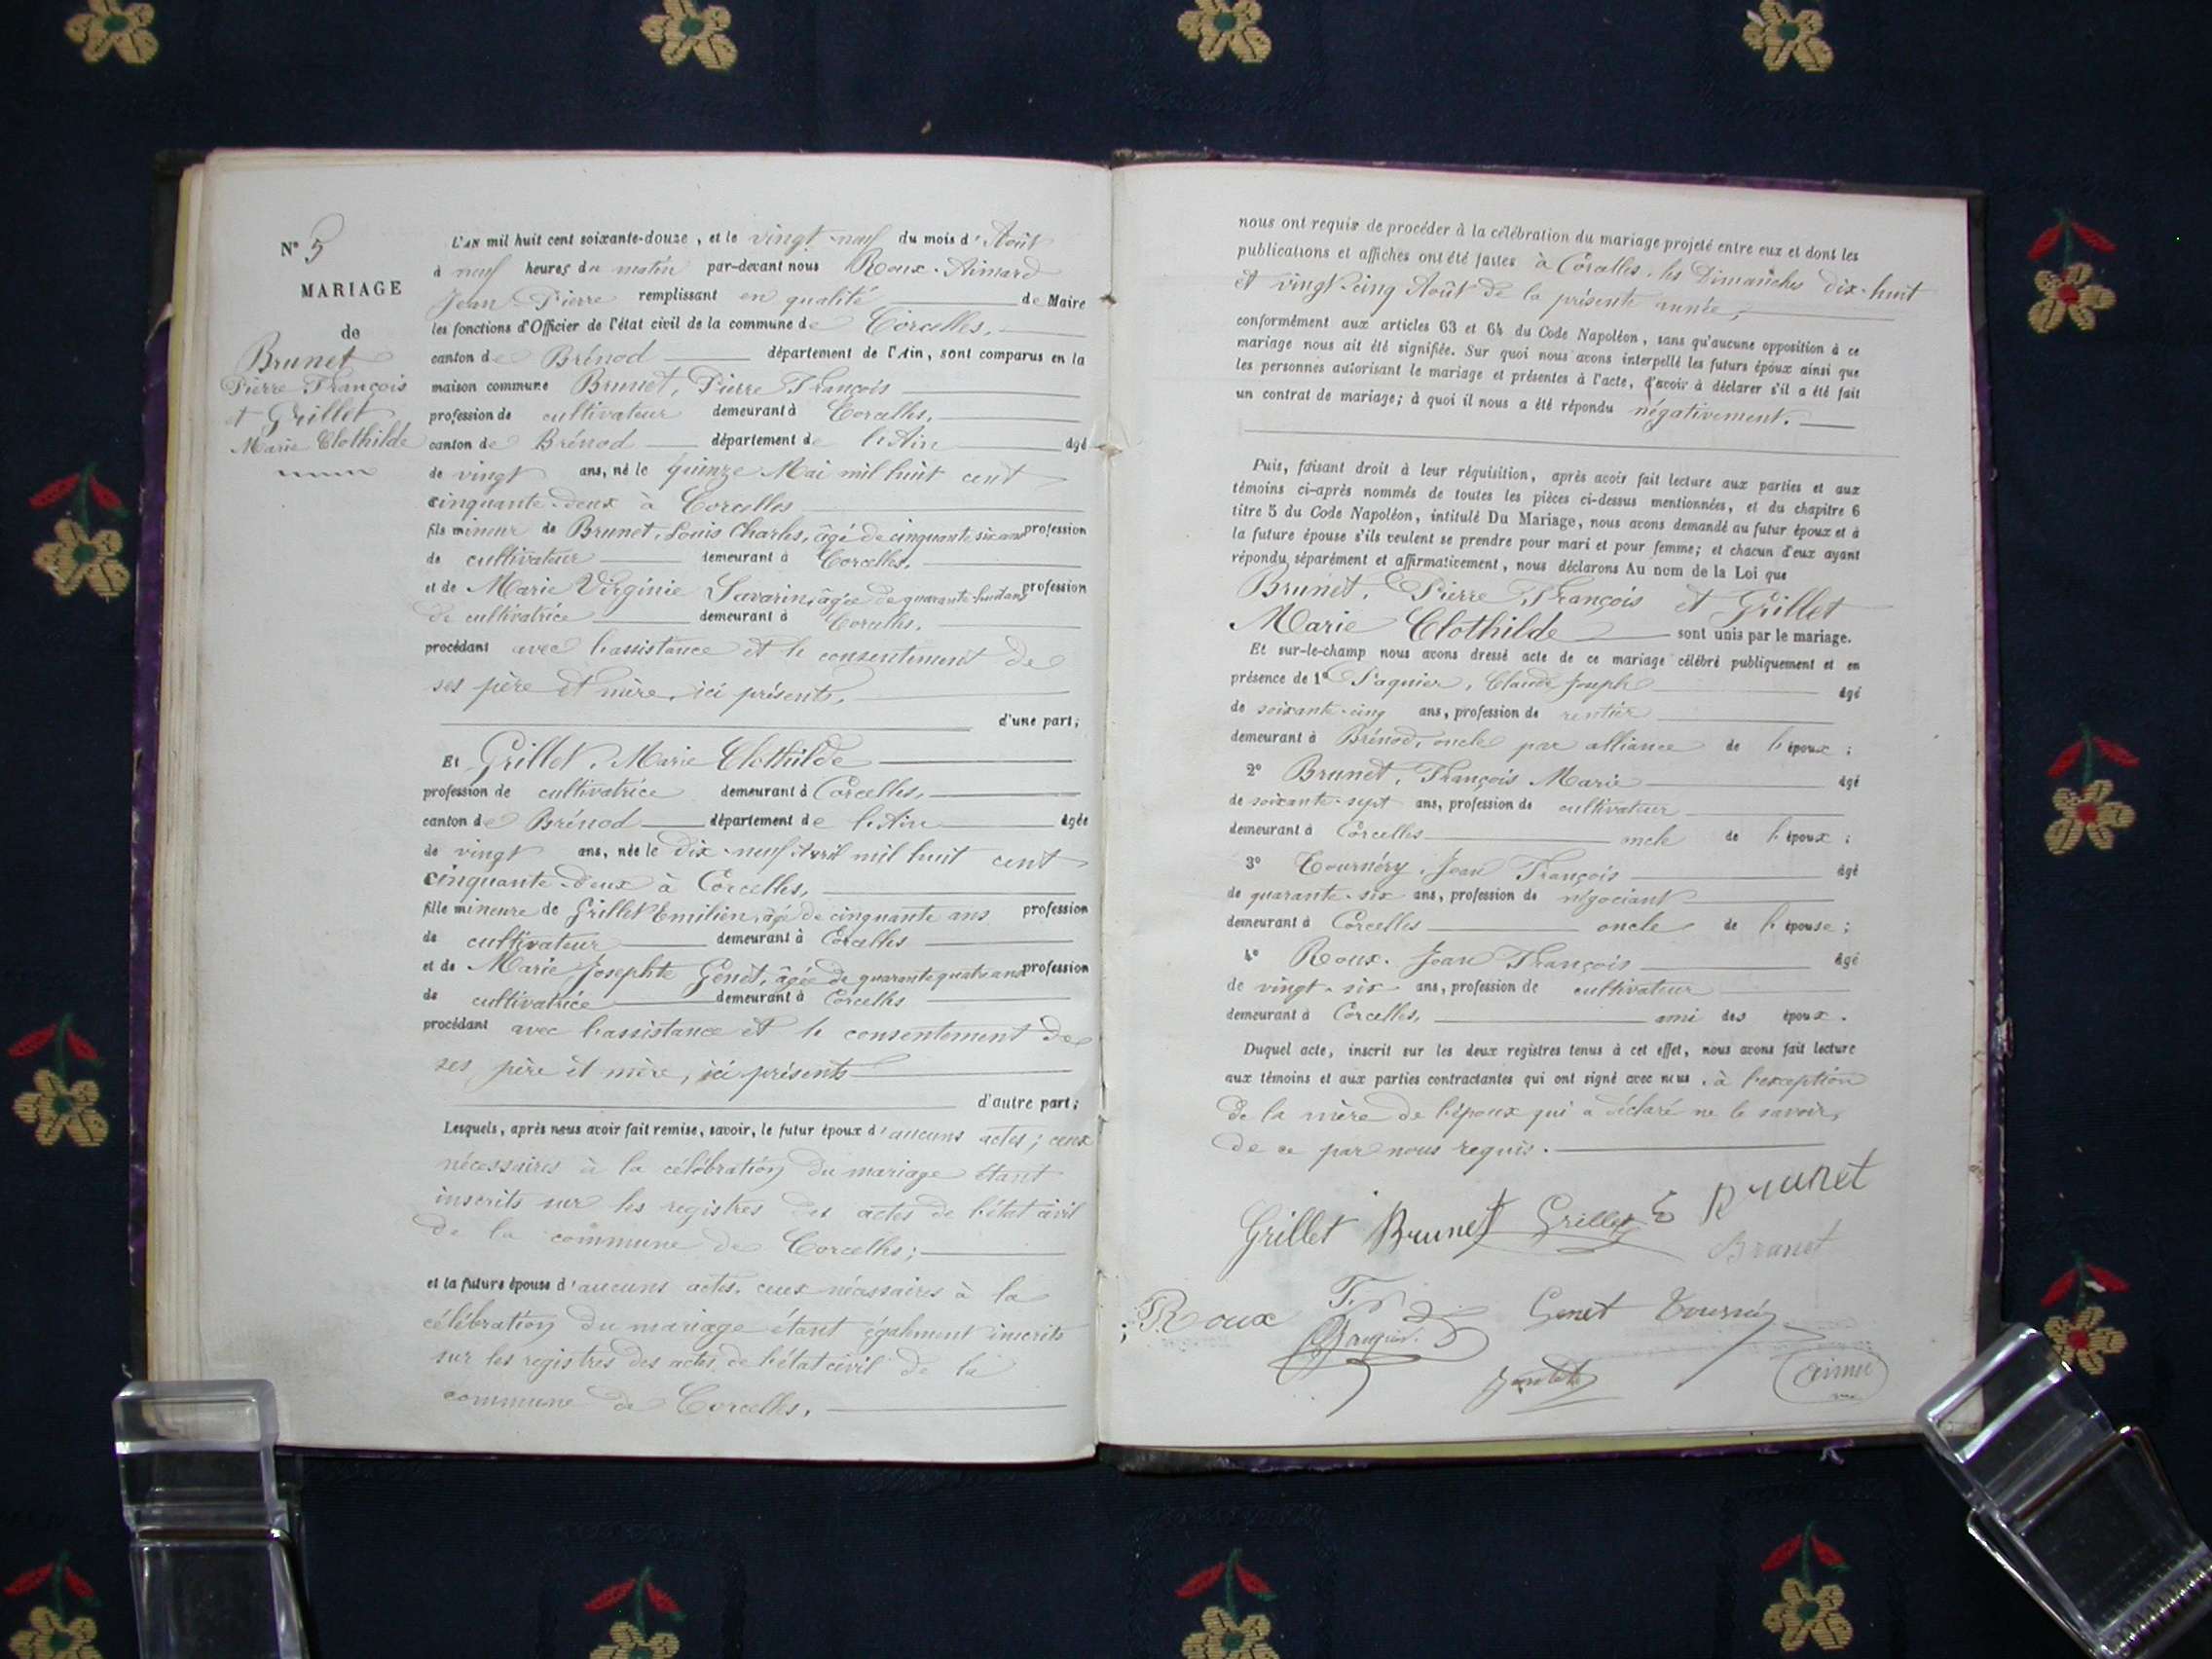 N° 5
MARIAGE
de
Brunet
Pierre François
et Grillet
Marie Clothilde
L'AN mil huit cent soixante-douze, et le vingt-neuf du mois d'Août
à neuf heures du matin par-devant nous Roux-Aimard
Jean-Pierre remplissant en qualité de Maire
les fonctions d'Officier de l'état civil de la commune de Corcelles,
canton de Brénod département de l'Ain, sont comparus en la
maison commune Brunet, Pierre François
profession de cultivateur demeurant à Corcelles,
canton de Brénod département de l'Ain âgé
de vingt ans, né le quinze Mai mil huit cent
cinquante-deux à Corcelles
fils mineur de Brunet, Louis Charles, âgé de cinquante six ans profession
de cultivateur demeurant à Corcelles,
et de Marie Virginie Savarin, âgée de quarante-huit ans profession
de cultivatrice demeurant à Corcelles,
procédant avec l'assistance et le consentement de
ses père et mère, ici présents,
d'une part;
Et Grillet, Marie Clothilde
profession de cultivatrice demeurant à Corcelles,
canton de Brénod département de l'Ain âgée
de vingt ans, née le dix-neuf Avril mil huit cent
cinquante-deux à Corcelles,
fille mineure de Grillet Emilien, âgé de cinquante ans profession
de cultivateur demeurant à Corcelles
et de Marie Josephte Genet, âgée de quarante quatre ans profession
de cultivatrice demeurant à Corcelles
procédant avec l'assistance et le consentement de
ses père et mère, ici présents
d'autre part;
Lesquels, après nous avoir fait remise, savoir, le futur époux d'aucuns actes; ceux
nécessaires à la célébration du mariage étant
inscrits sur les registres des actes de l'état civil
de la commune de Corcelles;
et la future épouse d'aucuns actes, ceux nécessaires à la
célébration du mariage étant également inscrits
sur les registres des actes de l'état civil de la
commune de Corcelles,
nous ont requis de procéder à la célébration du mariage projeté entre eux et dont les
publications et affiches ont été faites à Corcelles, les Dimanches dix-huit
et vingt-cinq Août de la présente année,
conformément aux articles 63 et 64 du Code Napoléon, sans qu'aucune opposition à ce
mariage nous ait été signifiée. Sur quoi nous avons interpellé les futurs époux ainsi que
les personnes autorisant le mariage et présentes à l'acte, d'avoir à déclarer s'il a été fait
un contrat de mariage; à quoi il nous a été répondu négativement.
Puis, faisant droit à leur réquisition, après avoir fait lecture aux parties et aux
témoins ci-après nommés de toutes les pièces ci-dessus mentionnées, et du chapitre 6
titre 5 du Code Napoléon, intitulé Du Mariage, nous avons demandé au futur époux et à
la future épouse s'ils veulent se prendre pour mari et pour femme; et chacun d'eux ayant
répondu séparément et affirmativement, nous déclarons Au nom de la Loi que
Brunet, Pierre François et Grillet
Marie Clothilde sont unis par le mariage.
Et sur-le-champ nous avons dressé acte de ce mariage célébré publiquement et en
présence de 1° Paquier, Claude Joseph âgé
de soixante-cinq ans, profession de rentier
demeurant à Brénod, oncle par alliance de l'époux;
2° Brunet, François Marie âgé
de soixante-sept ans, profession de cultivateur
demeurant à Corcelles oncle de l'époux;
3° Tournéry, Jean François âgé
de quarante-six ans, profession de négociant
demeurant à Corcelles oncle de l'épouse;
4° Roux, Jean François âgé
de vingt-six ans, profession de cultivateur
demeurant à Corcelles, ami des époux.
Duquel acte, inscrit sur les deux registres tenus à cet effet, nous avons fait lecture
aux témoins et aux parties contractantes qui ont signé avec nous, à l'exception
de la mère de l'époux qui a déclaré ne le savoir,
de ce par nous requis.
Grillet Brunet Grillet E Brunet
Brunet
Roux Genet